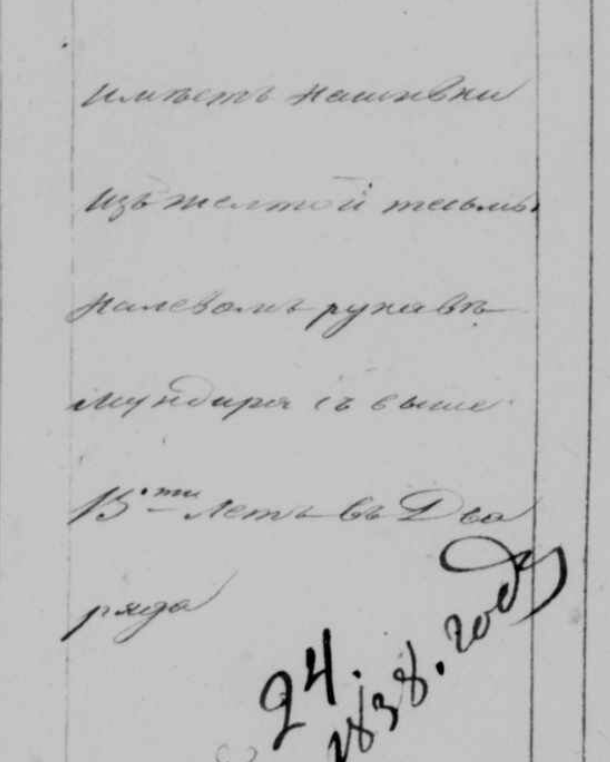 имѣетъ нашивки
изъ желтой тесьмы
налевомъ рукавѣ
мундира съ выше
15.ти летъ въ Два
ряда
24.
1838. году